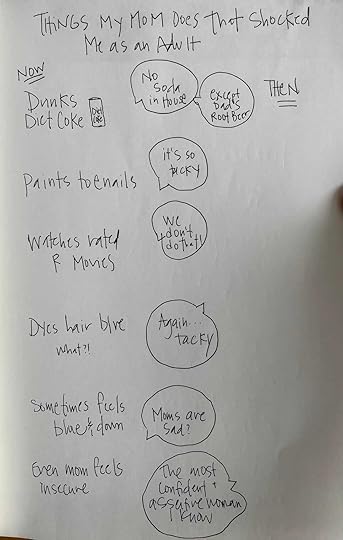 Things My Mom Does That Shocked
Me as an Adult
Now
Then
Drinks
Diet Coke
Diet
Coke
No
Soda
in House
except
Dad's
Root Beer
Paints toenails
it's so
tacky
Watches rated
R Movies
We
don't
do that!
Dyes hair blue
what?!
Again...
tacky
Sometimes feels
blue & down
Moms are
sad?
Even mom feels
insecure
The most
confident +
assertive woman
I know